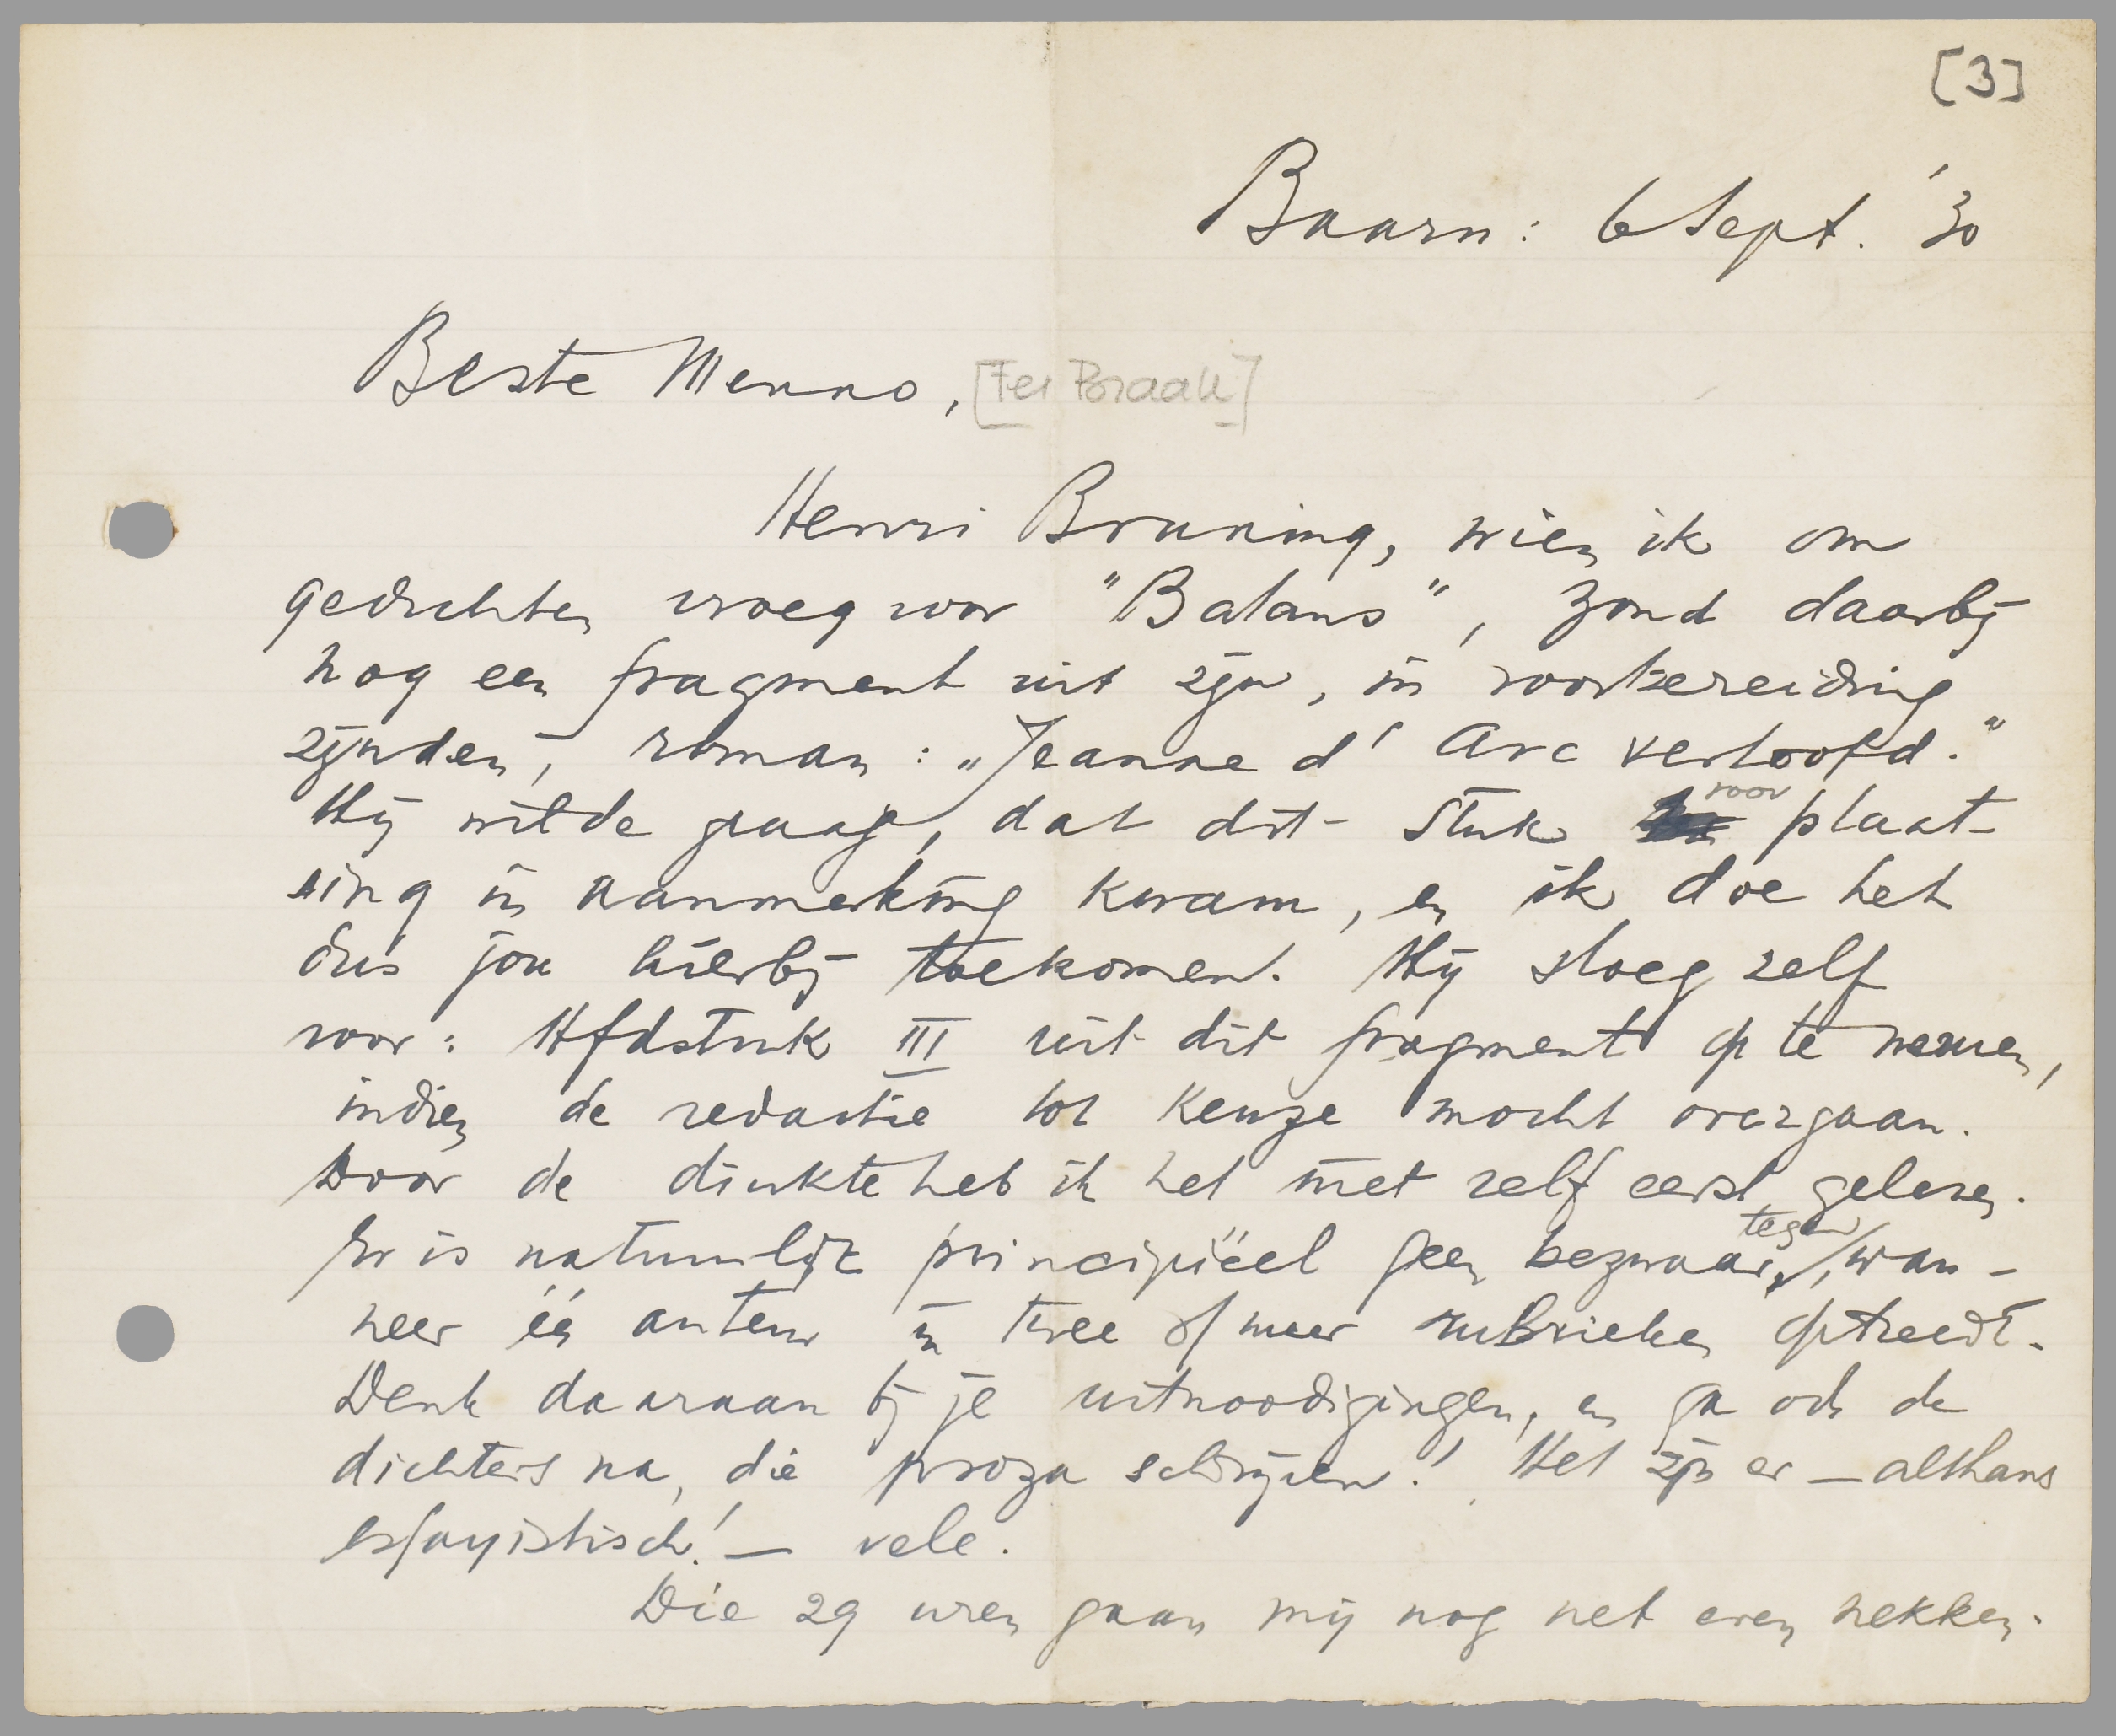 [3]
Baarn: 6 Sept. '30
Beste Menno, [Ter Braak]
Henri Bruning, wien ik om
gedichten vroeg voor "Balans", zond daarbij
nog een fragment uit zijn, in voorbereiding
zijnden, roman: „Jeanne d' Arc verloofd."
Hij wilde graag, dat dit stuk voor plaat-
sing in aanmerking kwam, en ik doe het
dus jou hierbij toekomen. Hij sloeg zelf
voor: Hfdstuk III uit dit fragment op te nemen,
indien de redactie tot keuze mocht overgaan.
Door de drukte heb ik het niet zelf eerst gelezen.
Er is natuurlijk principiëel geen bezwaar tegen, wan-
neer één auteur in twee of meer rubrieken optreedt.
Denk daaraan bij je uitnoodigingen, en ga ook de
dichters na, die proza schrijven! Het zijn er — althans
essayistisch! — vele.
Die 29 uren gaan mij nog net even nekken.